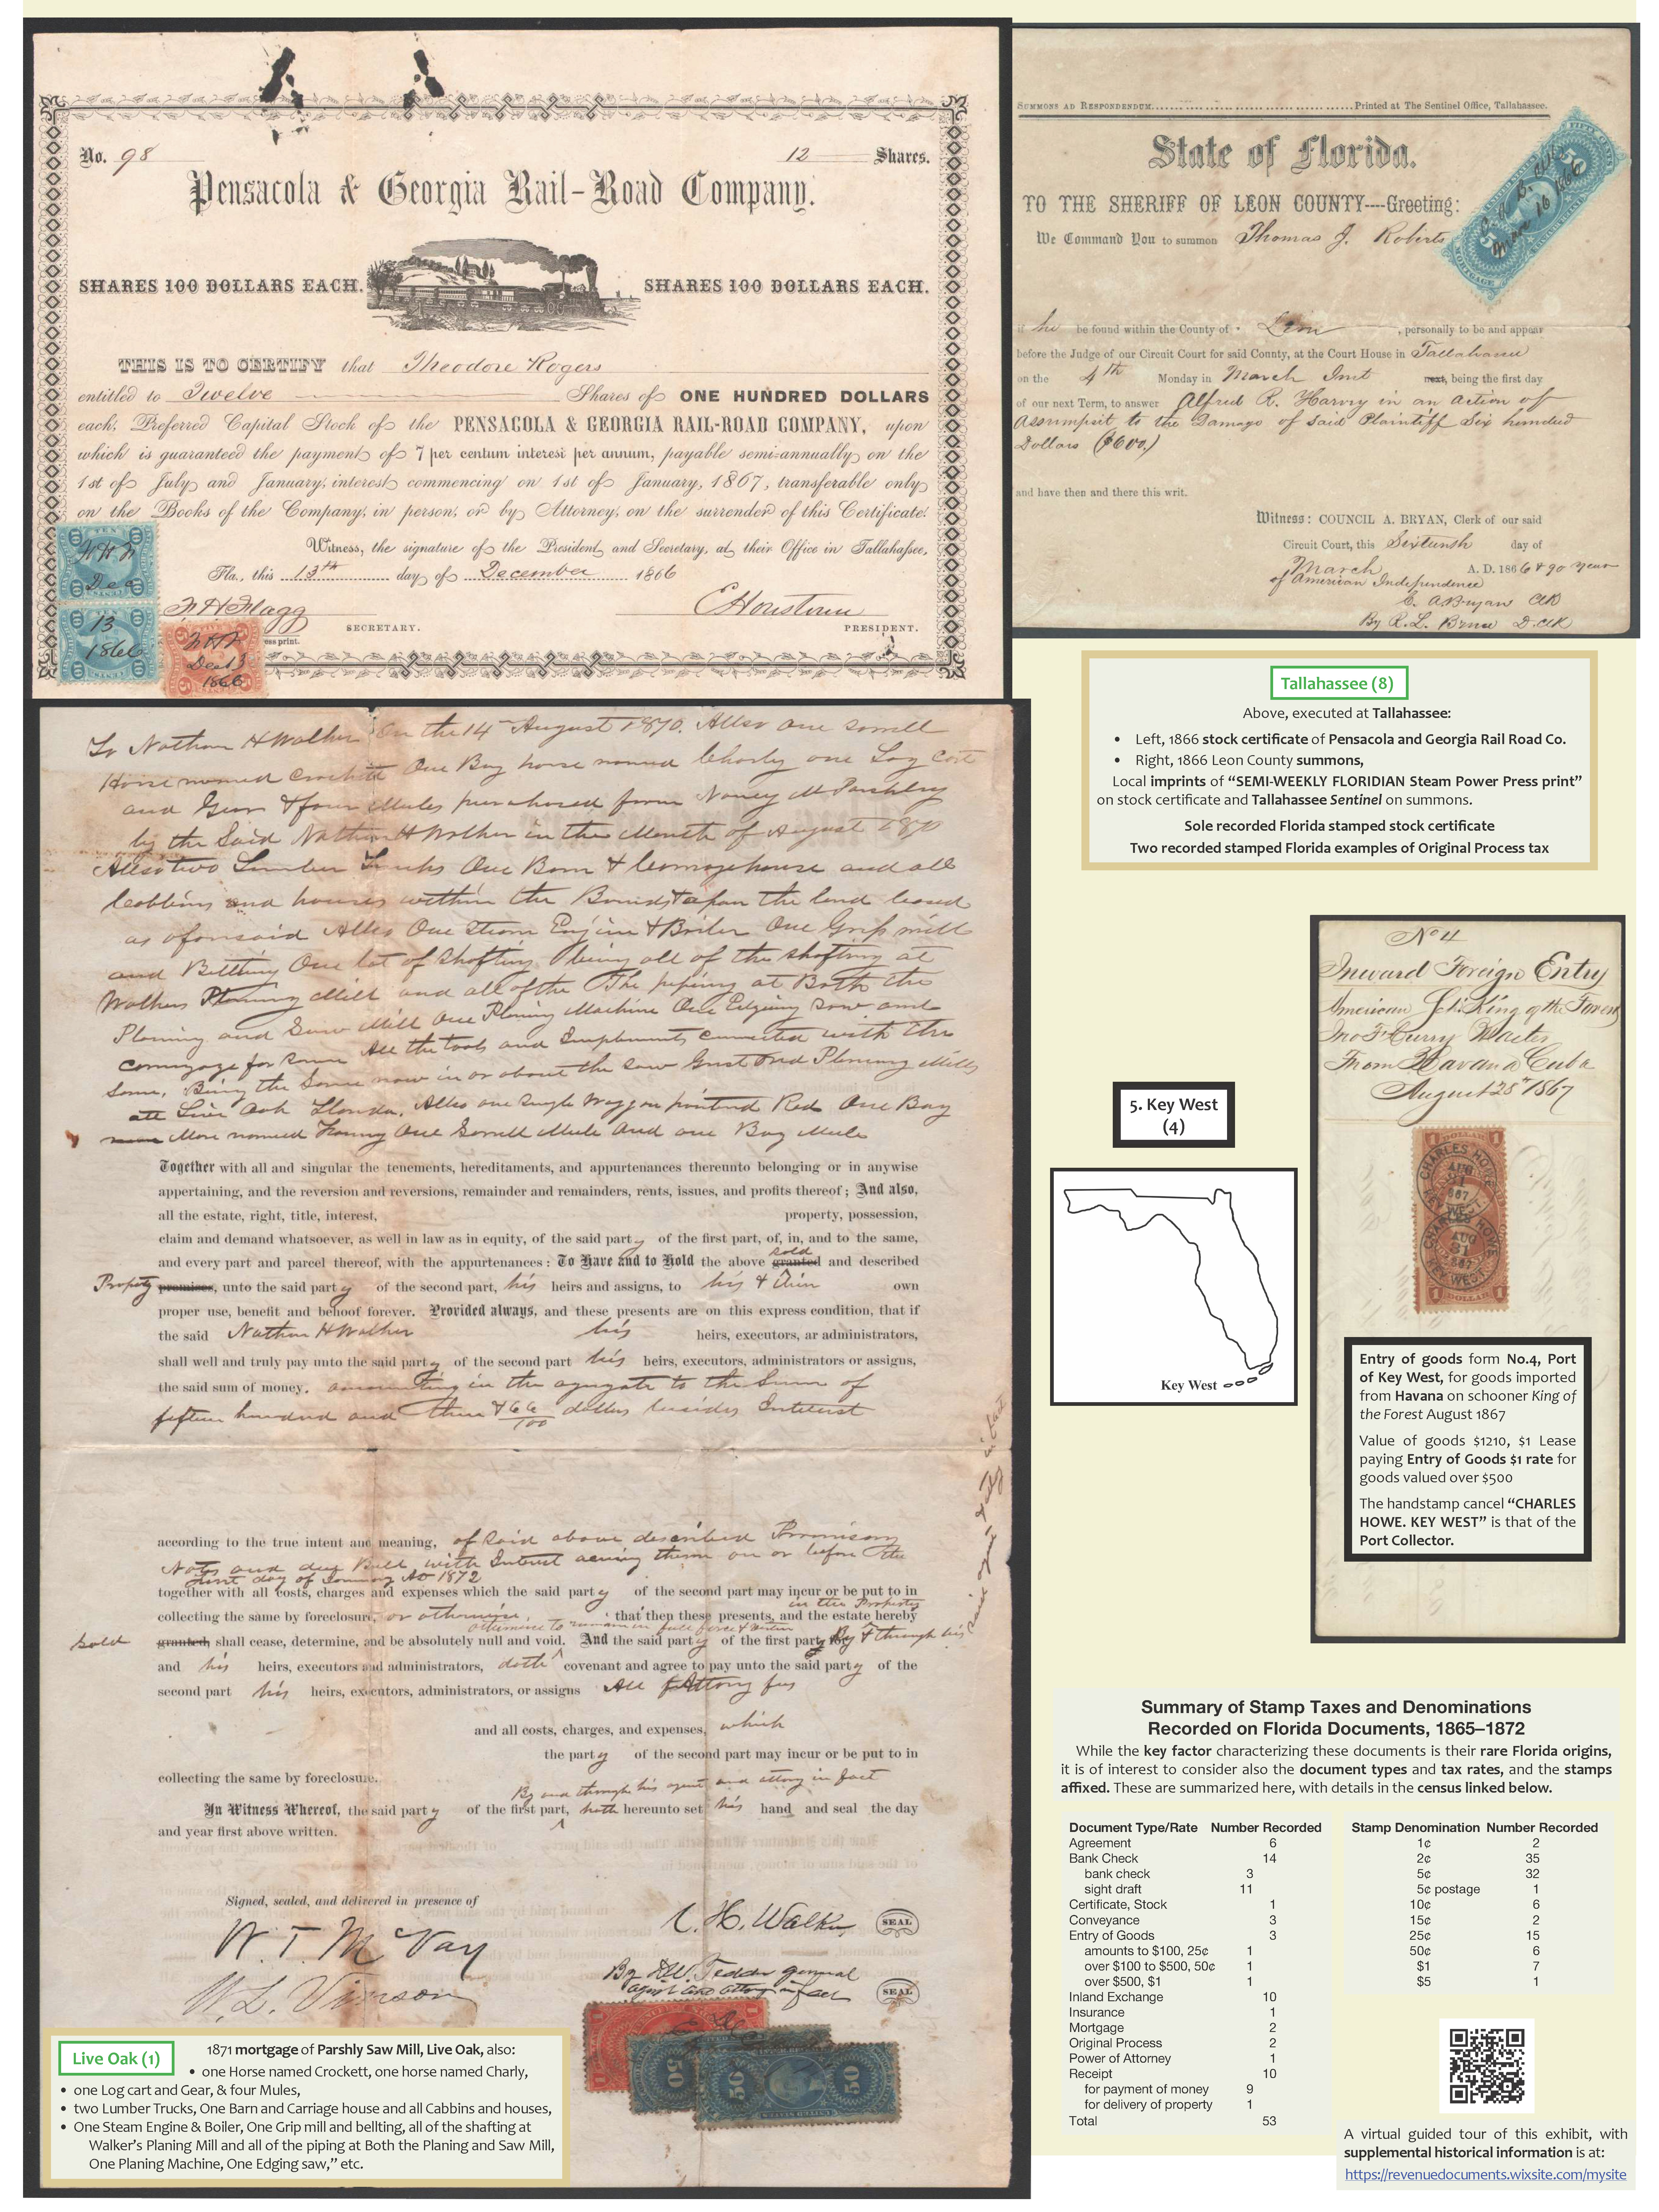 No. 98
12 Shares.
Pensacola & Georgia Rail-Road Company.
SHARES 100 DOLLARS EACH.
SHARES 100 DOLLARS EACH.
THIS IS TO CERTIFY that Theodore Rogers
entitled to Twelve Shares of ONE HUNDRED DOLLARS
each, Preferred Capital Stock of the PENSACOLA & GEORGIA RAIL-ROAD COMPANY, upon
which is guaranteed the payment of 7 per centum interest per annum, payable semi-annually on the
1st of July and January, interest commencing on 1st of January, 1867, transferable only
on the Books of the Company, in person, or by Attorney, on the surrender of this Certificate.
Witness, the signature of the President and Secretary, at their Office in Tallahassee,
Fla., this 13th day of December 1866
F H Flagg
SECRETARY.
C Houstoun
PRESIDENT.
ess print.
Dec
13
1866
Dec 13
1866
SUMMONS AD RESPONDENDUM. Printed at The Sentinel Office, Tallahassee.
State of Florida.
TO THE SHERIFF OF LEON COUNTY----Greeting:
We Command You to summon Thomas J. Roberts
if he be found within the County of Leon, personally to be and appear
before the Judge of our Circuit Court for said County, at the Court House in Tallahassee
on the 4th Monday in March Inst next, being the first day
of our next Term, to answer Alfred R. Harvey in an action of
Assumpsit to the Damage of said Plaintiff Six hundred
Dollars ($600.)
and have then and there this writ.
Witness: COUNCIL A. BRYAN, Clerk of our said
Circuit Court, this Sixteenth day of
March A. D. 1866 & 90 year
of American Independence
C. A Bryan Clk
By R. L. D. Clk
Mar 16 1866
Tallahassee (8)
Above, executed at Tallahassee:
• Left, 1866 stock certificate of Pensacola and Georgia Rail Road Co.
• Right, 1866 Leon County summons,
Local imprints of “SEMI-WEEKLY FLORIDIAN Steam Power Press print”
on stock certificate and Tallahassee Sentinel on summons.
Sole recorded Florida stamped stock certificate
Two recorded stamped Florida examples of Original Process tax
To Nathan H Walker On the 14 August 1870. Allso one sorrell
Horse named Crockett One Bay horse named Charly one Log cart
and Gear & four Mules purchased from Nancy M Parshley
by the Said Nathan H Walker in the Month of August 1870
Allso two Lumber Trucks One Barn & Carriage house and all
Cabbins and houses within the Bounds & upon the land leased
as aforesaid Allso One Steam Engine & Boiler One Grip mill
and Bellting One lot of shafting being all of the shafting at
Walkers Planing Mill and all of the The pipeing at Both the
Planing and Saw Mill One Planing Machine One Edging saw and
carriage for same All the tools and Implements connected with the
same, Being the Same now in or about the Saw Grist and Planing Mills
att Live Oak Florida. Allso one single Waggon painted Red One Bay
Mare named Fanny One Sorrell Mule and one Bay Mule
Together with all and singular the tenements, hereditaments, and appurtenances thereunto belonging or in anywise
appertaining, and the reversion and reversions, remainder and remainders, rents, issues, and profits thereof; And also,
all the estate, right, title, interest, property, possession,
claim and demand whatsoever, as well in law as in equity, of the said party of the first part, of, in, and to the same,
and every part and parcel thereof, with the appurtenances: To Have and to Hold the above granted sold and described
Property premises, unto the said party of the second part, his heirs and assigns, to his & their own
proper use, benefit and behoof forever. Provided always, and these presents are on this express condition, that if
the said Nathan H Walker his heirs, executors, ar administrators,
shall well and truly pay unto the said party of the second part his heirs, executors, administrators or assigns,
the said sum of money, amounting in the agregate to the Sum of
fifteen hundred and three & 66/100 dollars besides Interest
according to the true intent and meaning, of said above described Promisory
Notes and due Bill with Interest on or before the
first day of January AD 1872
together with all costs, charges and expenses which the said party of the second part may incur or be put to in
collecting the same by foreclosure, or otherwise, that then these presents, and the estate hereby in the Property
sold granted, shall cease, determine, and be absolutely null and void. otherwise to remain in full force & And the said party of the first part, for By & through his
and his heirs, executors and administrators, doth covenant and agree to pay unto the said party of the
second part his heirs, executors, administrators, or assigns All Attorny fees
and all costs, charges, and expenses, which
the party of the second part may incur or be put to in
collecting the same by foreclosure.
By and through his agent and attorny in fact
In Witness Whereof, the said party of the first part, hath hereunto set his hand and seal the day
and year first above written.
Signed, sealed, and delivered in presence of
W. T. McVay
W. L. Vinson
N. H. Walker SEAL
By general
agent and attorny in fact SEAL
Live Oak (1)
1871 mortgage of Parshly Saw Mill, Live Oak, also:
• one Horse named Crockett, one horse named Charly,
• one Log cart and Gear, & four Mules,
• two Lumber Trucks, One Barn and Carriage house and all Cabbins and houses,
• One Steam Engine & Boiler, One Grip mill and bellting, all of the shafting at
Walker’s Planing Mill and all of the piping at Both the Planing and Saw Mill,
One Planing Machine, One Edging saw,” etc.
5. Key West
(4)
Key West
No 4
Inward Foreign Entry
American Sch. King of the Forest
Jno F Curry Master
From Havana Cuba
August 28th 1867
CHARLES HOWE
AUG
31
1867
KEY WEST
CHARLES HOWE
AUG
31
1867
KEY WEST
Entry of goods form No.4, Port
of Key West, for goods imported
from Havana on schooner King of
the Forest August 1867
Value of goods $1210, $1 Lease
paying Entry of Goods $1 rate for
goods valued over $500
The handstamp cancel “CHARLES
HOWE. KEY WEST” is that of the
Port Collector.
Summary of Stamp Taxes and Denominations
Recorded on Florida Documents, 1865–1872
While the key factor characterizing these documents is their rare Florida origins,
it is of interest to consider also the document types and tax rates, and the stamps
affixed. These are summarized here, with details in the census linked below.
Document Type/Rate Number Recorded
Agreement 6
Bank Check 14
bank check 3
sight draft 11
Certificate, Stock 1
Conveyance 3
Entry of Goods 3
amounts to $100, 25¢ 1
over $100 to $500, 50¢ 1
over $500, $1 1
Inland Exchange 10
Insurance 1
Mortgage 2
Original Process 2
Power of Attorney 1
Receipt 10
for payment of money 9
for delivery of property 1
Total 53
Stamp Denomination Number Recorded
1¢ 2
2¢ 35
5¢ 32
5¢ postage 1
10¢ 6
15¢ 2
25¢ 15
50¢ 6
$1 7
$5 1
A virtual guided tour of this exhibit, with
supplemental historical information is at:
https://revenuedocuments.wixsite.com/mysite